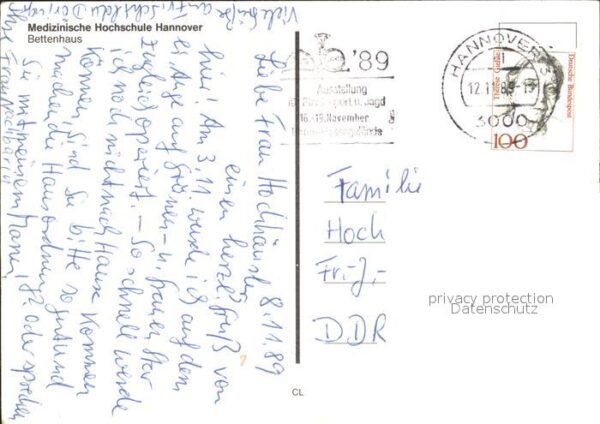 Medizinische Hochschule Hannover
Bettenhaus
Liebe Frau Hochhäusler 8.11.89
einen herzl. Gruß von
hier! Am 3.11. wurde ich auf dem
li. Auge auf Grünen- u. grauen Star
zugleich operiert. – So schnell werde
ich noch nicht nach Hause kommen
können, sind Sie bitte so gut und
machen die Hausordnung oder sprechen
Sie mit meinem Mann!
Ihre Frau
Viele Grüße
'89
Ausstellung
u. Jagd
16.-19. November
HANNOVER
12.11.89
3000
Deutsche Bundespost
Therese Giehse
100
Familie
Hoch
Fr.-J.-
DDR
privacy protection
Datenschutz
CL